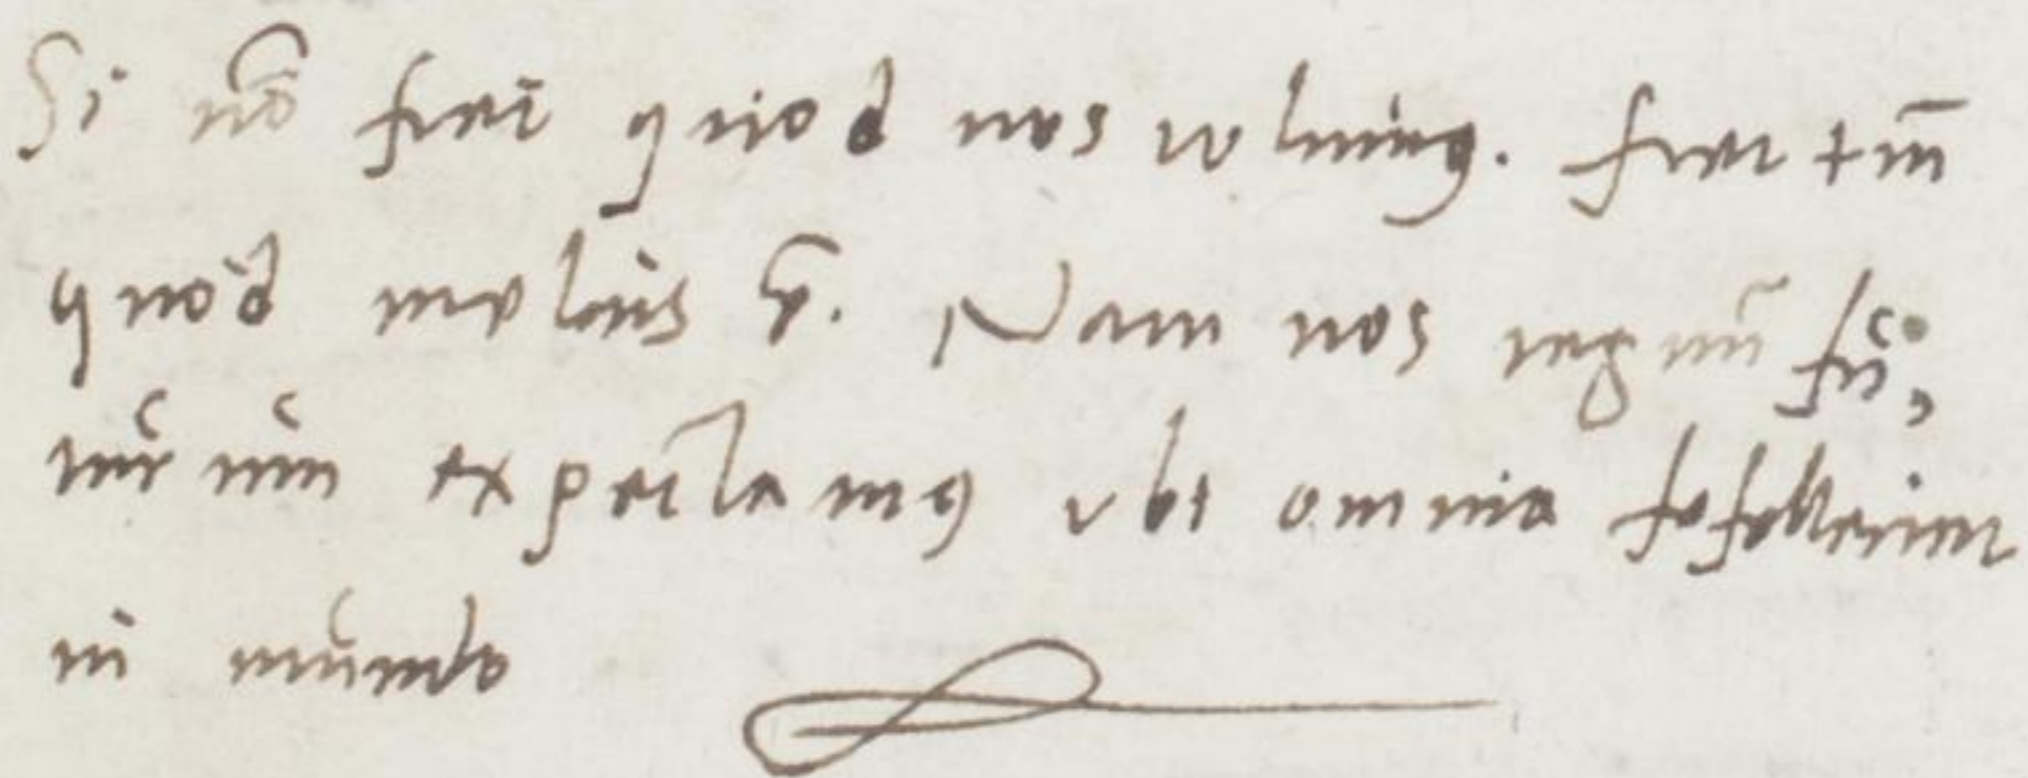 Si nō fiet quod nos volumus. fiet tm̄
quod melius ē. Nam nos regnū fu-
turum expectamus vbi omnia fefellerint
in mundo